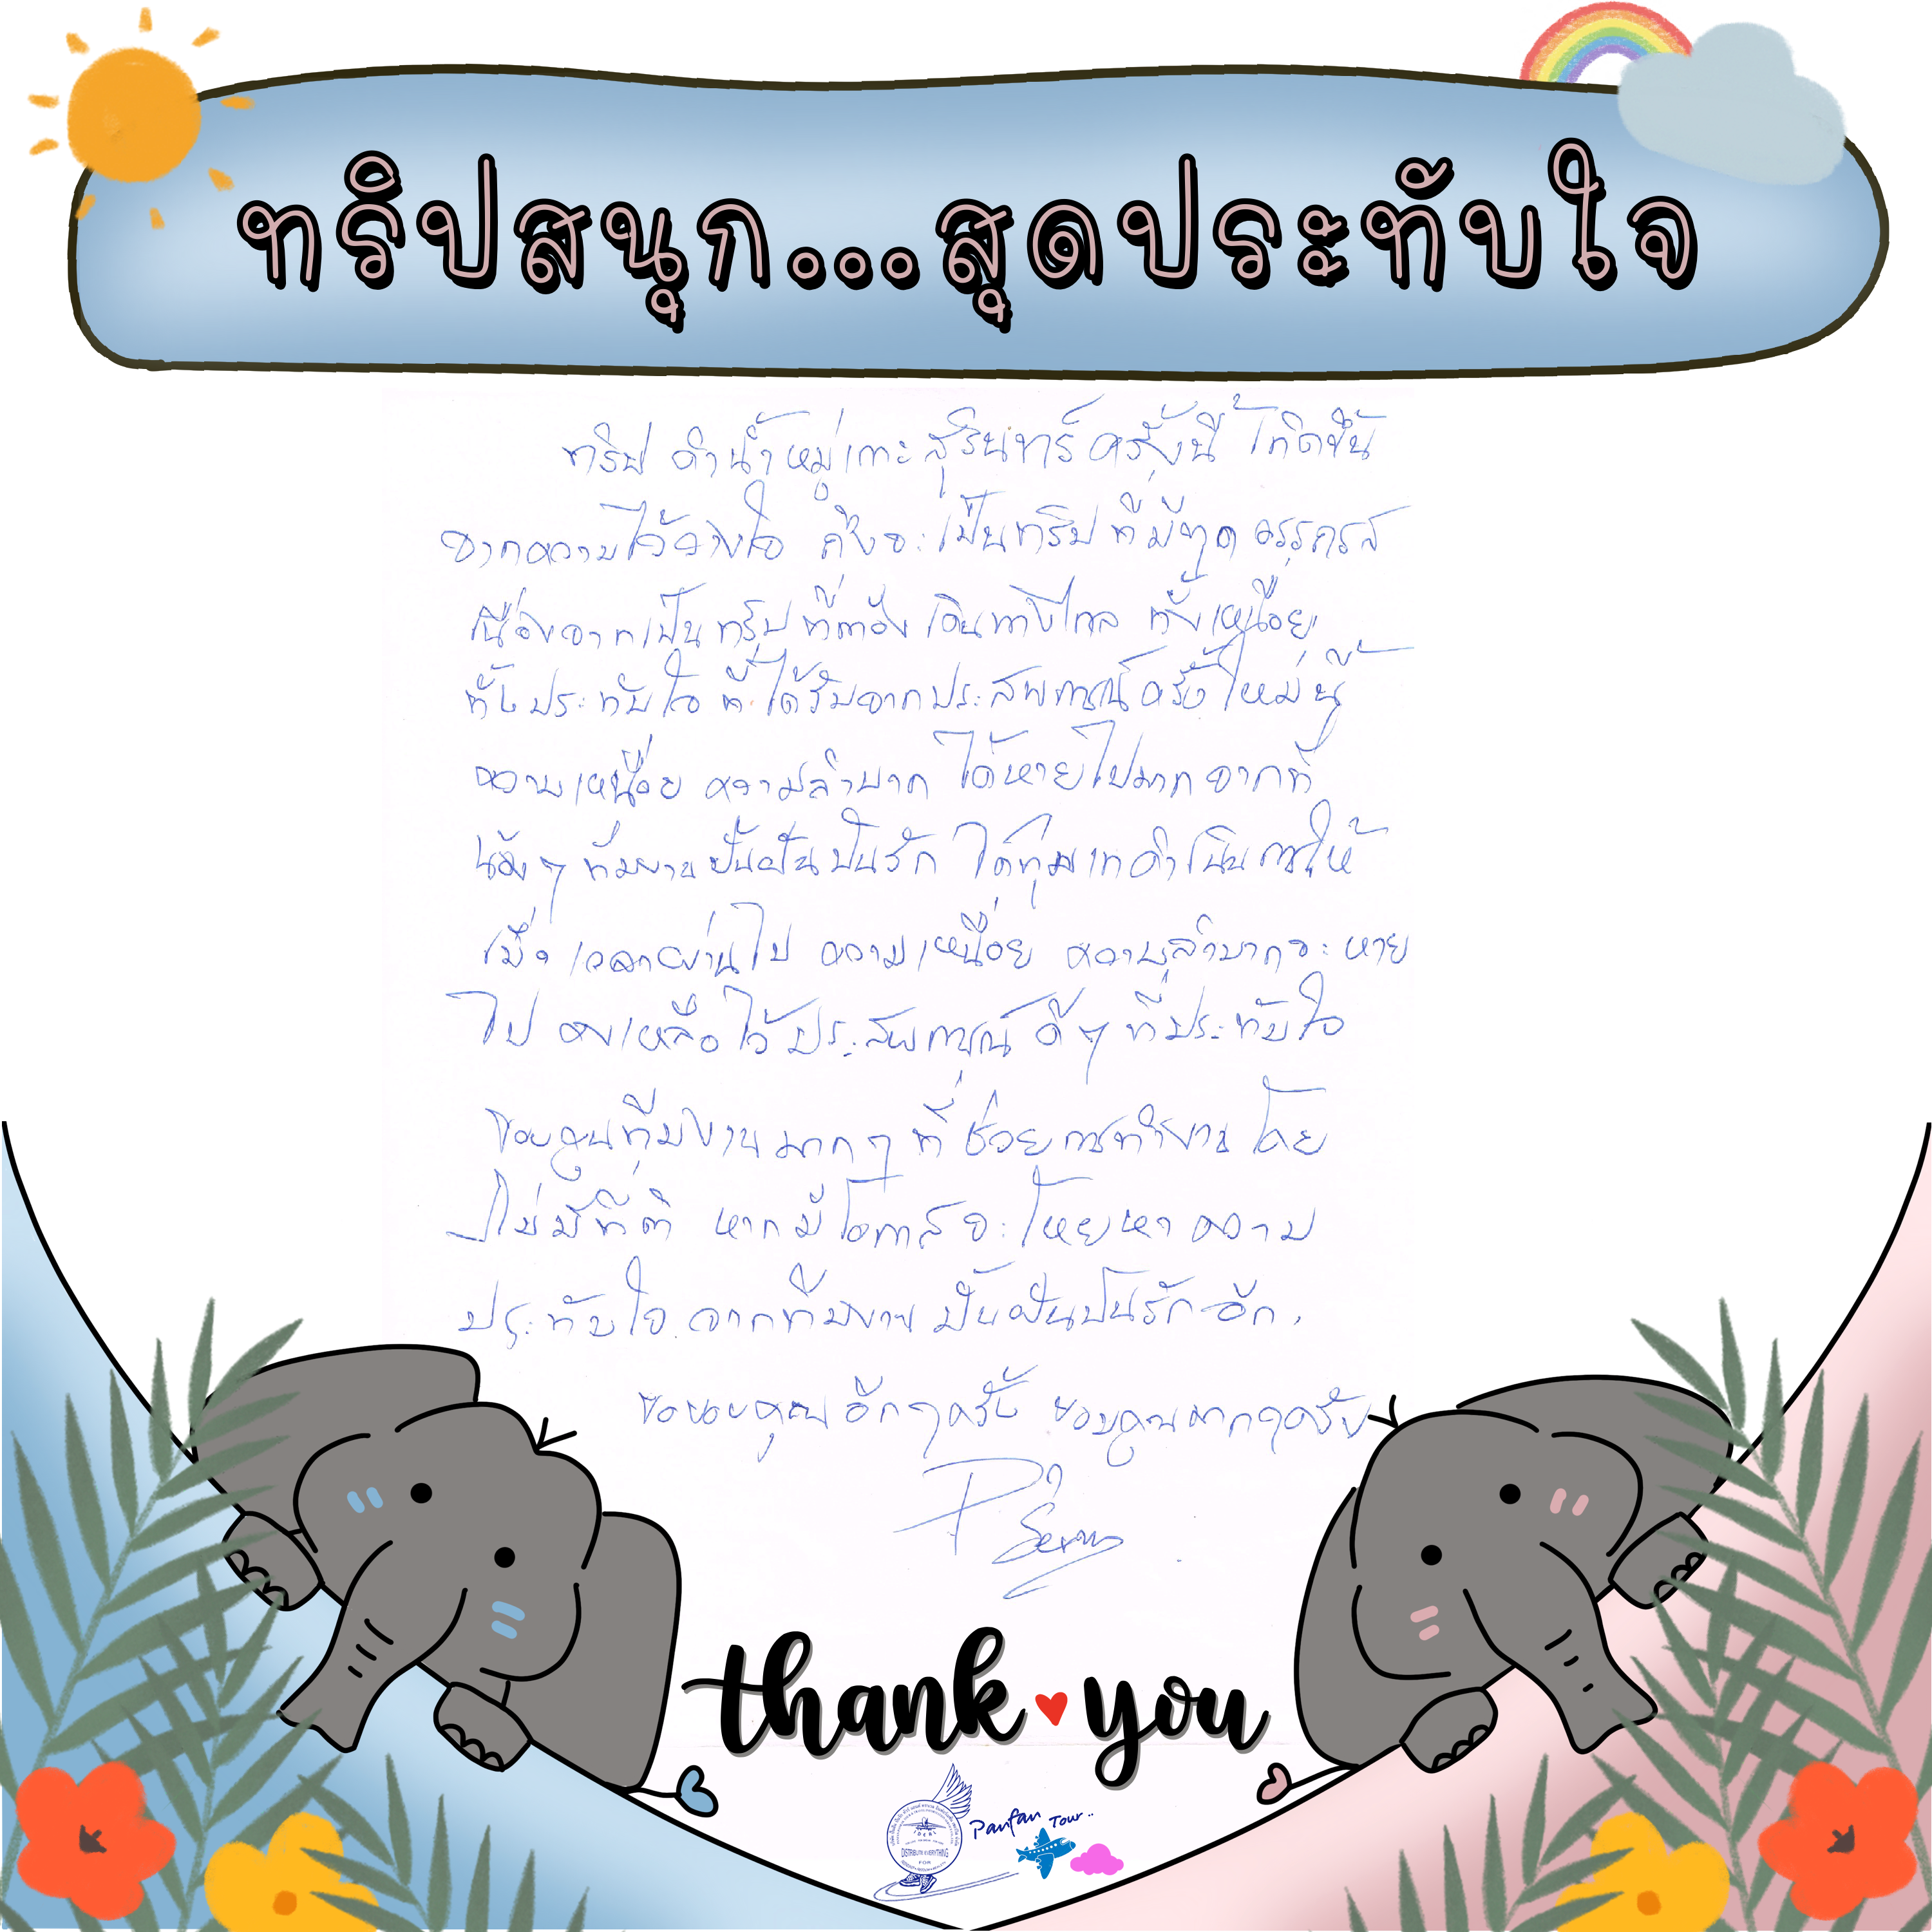 ทริปสนุก...สุดประทับใจ
ทริป ดำน้ำหมู่เกาะสุรินทร์ครั้งนี้ เกิดขึ้น
จากความไว้วางใจ ถึงจะเป็นทริปที่มี
เนื่องจากเป็นทริปที่ต้องเดินทางไกล ทั้งเหนื่อย
ทั้งประทับใจ ที่ได้รับจากประสพการณ์ครั้งใหม่นี้
ความเหนื่อย ความลำบาก ได้หายไปมาก จากที่
น้องๆ ทีมงานปั้นฝันปันรัก ได้ทุ่มเทดำเนินการให้
เมื่อ เวลาผ่านไป ความเหนื่อย ความลำบากจะหาย
ไป คงเหลือไว้ประสพการณ์ ดีๆ ที่ประทับใจ
ขอบคุณทีมงานมากๆ ที่ช่วยการทำงาน โดย
ไม่มีที่ติ หากมีโอกาสจะโหยหาความ
ประทับใจ จากทีมงาน ปั้นฝันปันรัก อีก
ขอขอบคุณ อีกๆครั้ง ขอบคุณมากๆครับ
thank you
Panfan Tour..
DISTRIBUTE EVERYTHING
FOR